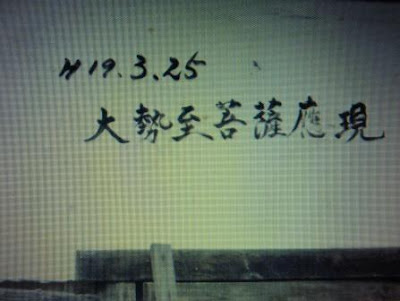 H19.3.25
大勢至菩薩應現